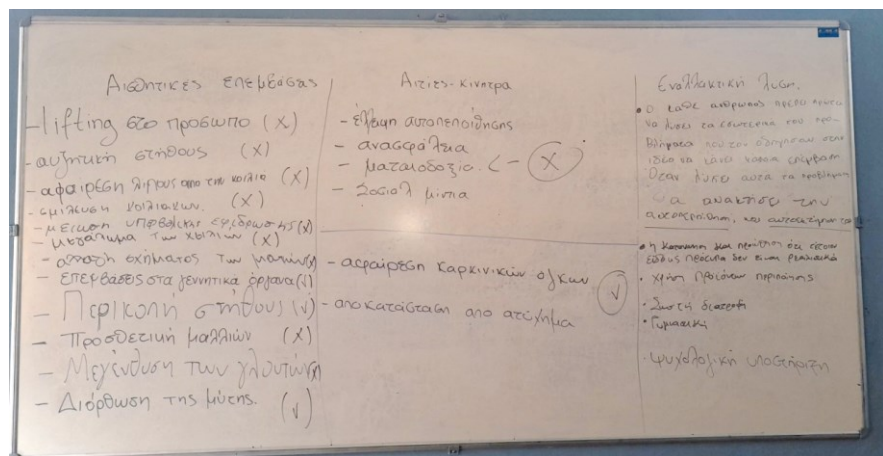 Αισθητικές επεμβάσεις
-lifting στο προσωπο (x)
-αυξητική στήθους (x)
-αφαιρεση λίπους απο την κοιλια (x)
-σμίλευση κοιλιακων. (x)
-μείωση υπερβολικης εφιδρωσης (x)
-μεγάλωμα των χειλιών (x)
- σχήματος των ματιών (x)
- επεμβάσεις στα γεννητικά όργανα (√)
- Περικοπή στήθους (√)
- Προσθετική μαλλιών (x)
- Μεγένθυση των γλουτών (x)
- Διόρθωση της μύτης. (√)
Αιτιες-κινητρα
-έλλειψη αυτοπεποίθησης
- ανασφάλεια
- ματαιοδοξία <- (x)
- Σοσιαλ μίντια
- αφαίρεση καρκινικών όγκων
- αποκατάσταση απο ατύχημα
√
Εναλλακτική λυση.
• Ο καθε ανθρωπος πρεπει πρωτα
να λυσει τα εσωτερικα του προ-
βληματα που τον οδηγησαν στην
ιδεα να κανει καποια επεμβαση
Οταν λυσει αυτα τα προβληματα
θα ανακτησει την
αυτοπεποίθηση, και
• η κατανοηση και ότι τετοιου
είδους πρότυπα δεν ειναι ρεαλιστικά
• χρήση προϊόντων περιποίησης
• Σωστή διατροφή
• Γυμναστική
• ψυχολογική υποστήριξη